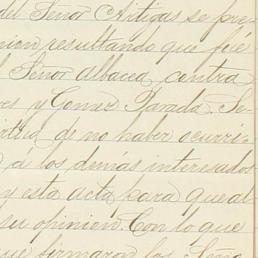 del Señor Artigas se pre-
nien resultando que fué
l Señor albacea, contra
res y Gomez Parada. Se-
irtud de no haber ocurri-
a los demás interesados
y esta acta para que al-
su opinion. Con lo que
que firmaron los Seño